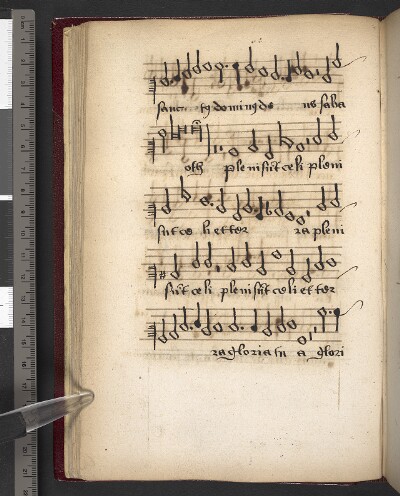 sanct tus dominus de us saba
oth pleni sūt celi pleni
sūt ce li et ter ra pleni
sūt celi pleni sūt celi et ter
ra gloria in a glori